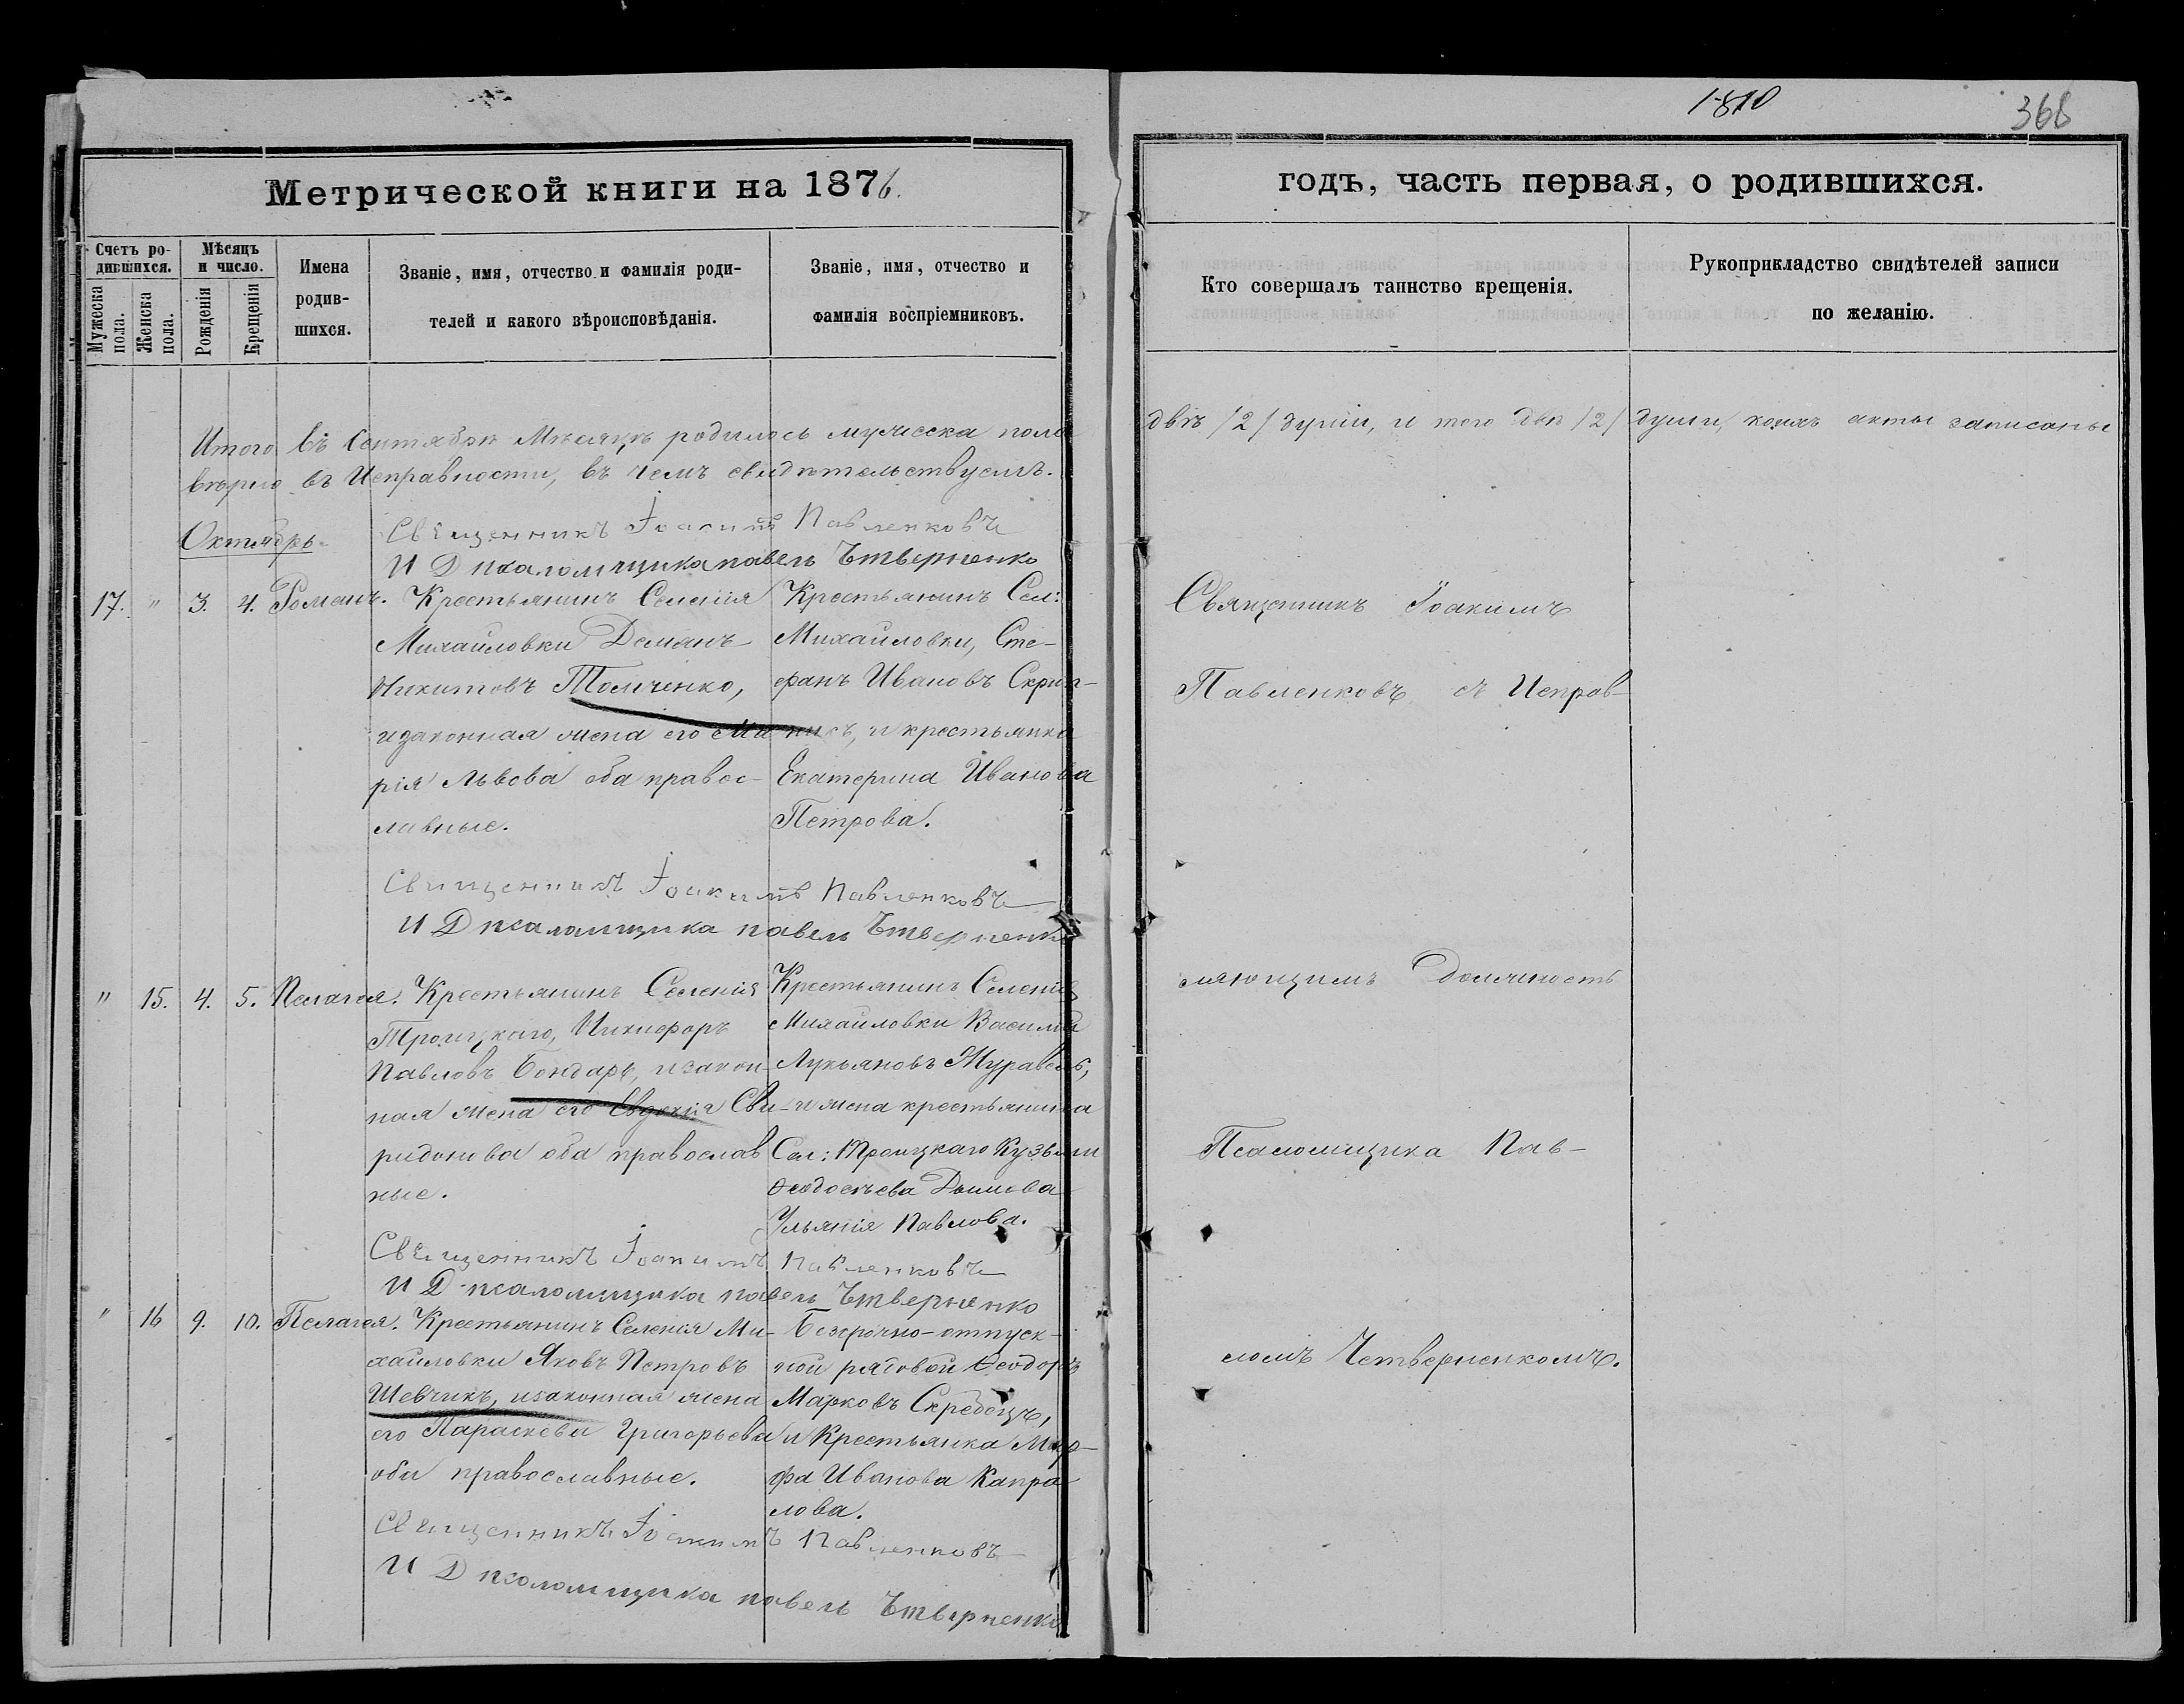 1810
366
Метрической книги на 1876.
годъ, часть первая, о родившихся.
Счетъ ро-
дившихся.
Мужеска
пола.
Женска
пола.
Мѣсяцъ
и число.
Рожденія
Крещенія
Имена
родив-
шихся.
Званіе, имя, отчество и фамилія роди-
телей и какого вѣроисповѣданія.
Званіе, имя, отчество и
фамилія воспріемниковъ.
Кто совершалъ таинство крещенія.
Рукоприкладство свидѣтелей записи
по желанію.
Итого въ Сентябрѣ Мѣсяцѣ родилось мужеска пола двѣ /2/ души, и того двѣ /2/ души, коихъ акты записаны
вѣрно въ Исправности, въ чемъ свидѣтельствуемъ.
Священникъ Іоакимъ Павленковъ
Октябрь.
И Д псаломщика павелъ Чтверненко
17. " 3. 4. Романъ.
Крестьянинъ Селенія
Михайловки Демянъ
Никитовъ Толченко,
изаконная жена его Ма
рія Львова оба правос-
лавные.
Крестьянинъ Сел:
Михайловки, Сте-
фанъ Ивановъ Скрип-
никъ, и крестьянка
Екатерина Иванова
Петрова.
Священникъ Іоакимъ
Павленковъ съ Исправ-
Священникъ Іоакимъ Павленковъ
И Д псаломщика павелъ Чтверненко
" 15. 4. 5. Пелагея.
Крестьянинъ Селенія
Троицкаго, Никифоръ
Павловъ Бондарь, изакон
ная жена его Евдокія Сви-
ридонова оба православ
ные.
Крестьянинъ Селенія
Михайловки Василій
Лукьяновъ Журавель,
и жена крестьянина
Сел: Троицкаго Кузьмы
Ѳеодосьева Дымова
Ульянія Павлова.
ляющимъ должность
Псаломщика Пав-
Священникъ Іоакимъ Павленковъ
И Д псаломщика павелъ Чтверненко
" 16 9. 10. Пелагея.
Крестьянинъ Селенія Ми-
хайловки Яковъ Петровъ
Шевчикъ, изаконная жена
его Параскева Григорьева
оба православные.
Безсрочно-отпуск-
ной рядовой Ѳеодоръ
Марковъ Скребецъ,
и Крестьянка Мар-
фа Иванова Капра
лова.
ломъ Четверненкомъ.
Священникъ Іоакимъ Павленковъ
И Д псаломщика павелъ Чтверненко